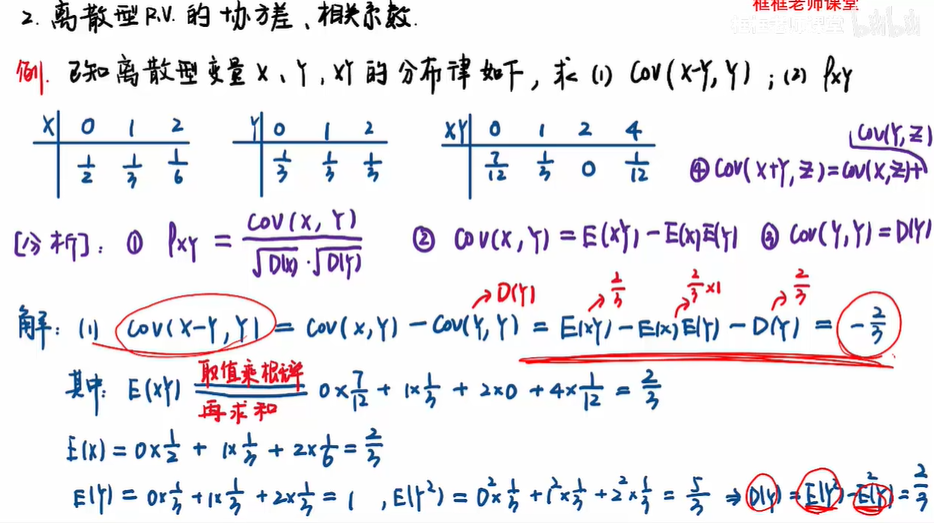 框框老师课堂
2. 离散型 R.V. 的协方差、相关系数.
例. 已知离散型变量 X、Y, XY 的分布律如下, 求 (1) Cov(X-Y, Y) ; (2) ρXY
X 0 1 2
1/2 1/3 1/6
Y 0 1 2
1/3 1/3 1/3
XY 0 1 2 4
7/12 1/3 0 1/12
④ Cov(X+Y, Z) = Cov(X, Z) + Cov(Y, Z)
[分析]: ① ρXY = Cov(X, Y) / √D(X) · √D(Y) ② Cov(X, Y) = E(XY) - E(X)E(Y) ③ Cov(Y, Y) = D(Y)
→ D(Y) 2/3 2/3 × 1 2/3
解: (1) Cov(X-Y, Y) = Cov(X, Y) - Cov(Y, Y) = E(XY) - E(X)E(Y) - D(Y) = -2/3
其中: E(XY) 取值乘概率 再求和 0×7/12 + 1×1/3 + 2×0 + 4×1/12 = 2/3
E(X) = 0×1/2 + 1×1/3 + 2×1/6 = 2/3
E(Y) = 0×1/3 + 1×1/3 + 2×1/3 = 1 , E(Y²) = 0²×1/3 + 1²×1/3 + 2²×1/3 = 5/3 ⇒ D(Y) = E(Y²) - E²(Y) = 2/3